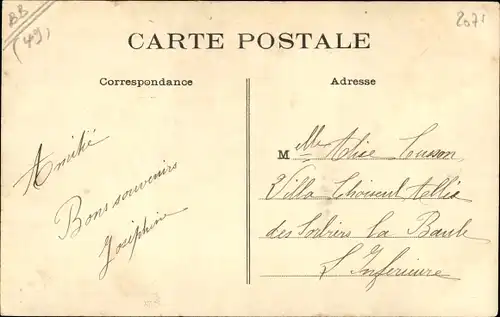 BB
(49)
2071
CARTE POSTALE
Correspondance
Adresse
Amitié
Bons souvenirs
Joséphine
Mlle Alice Cusson
Villa Choiseul Allée
des Sorbiers La Baule
L. Inférieure